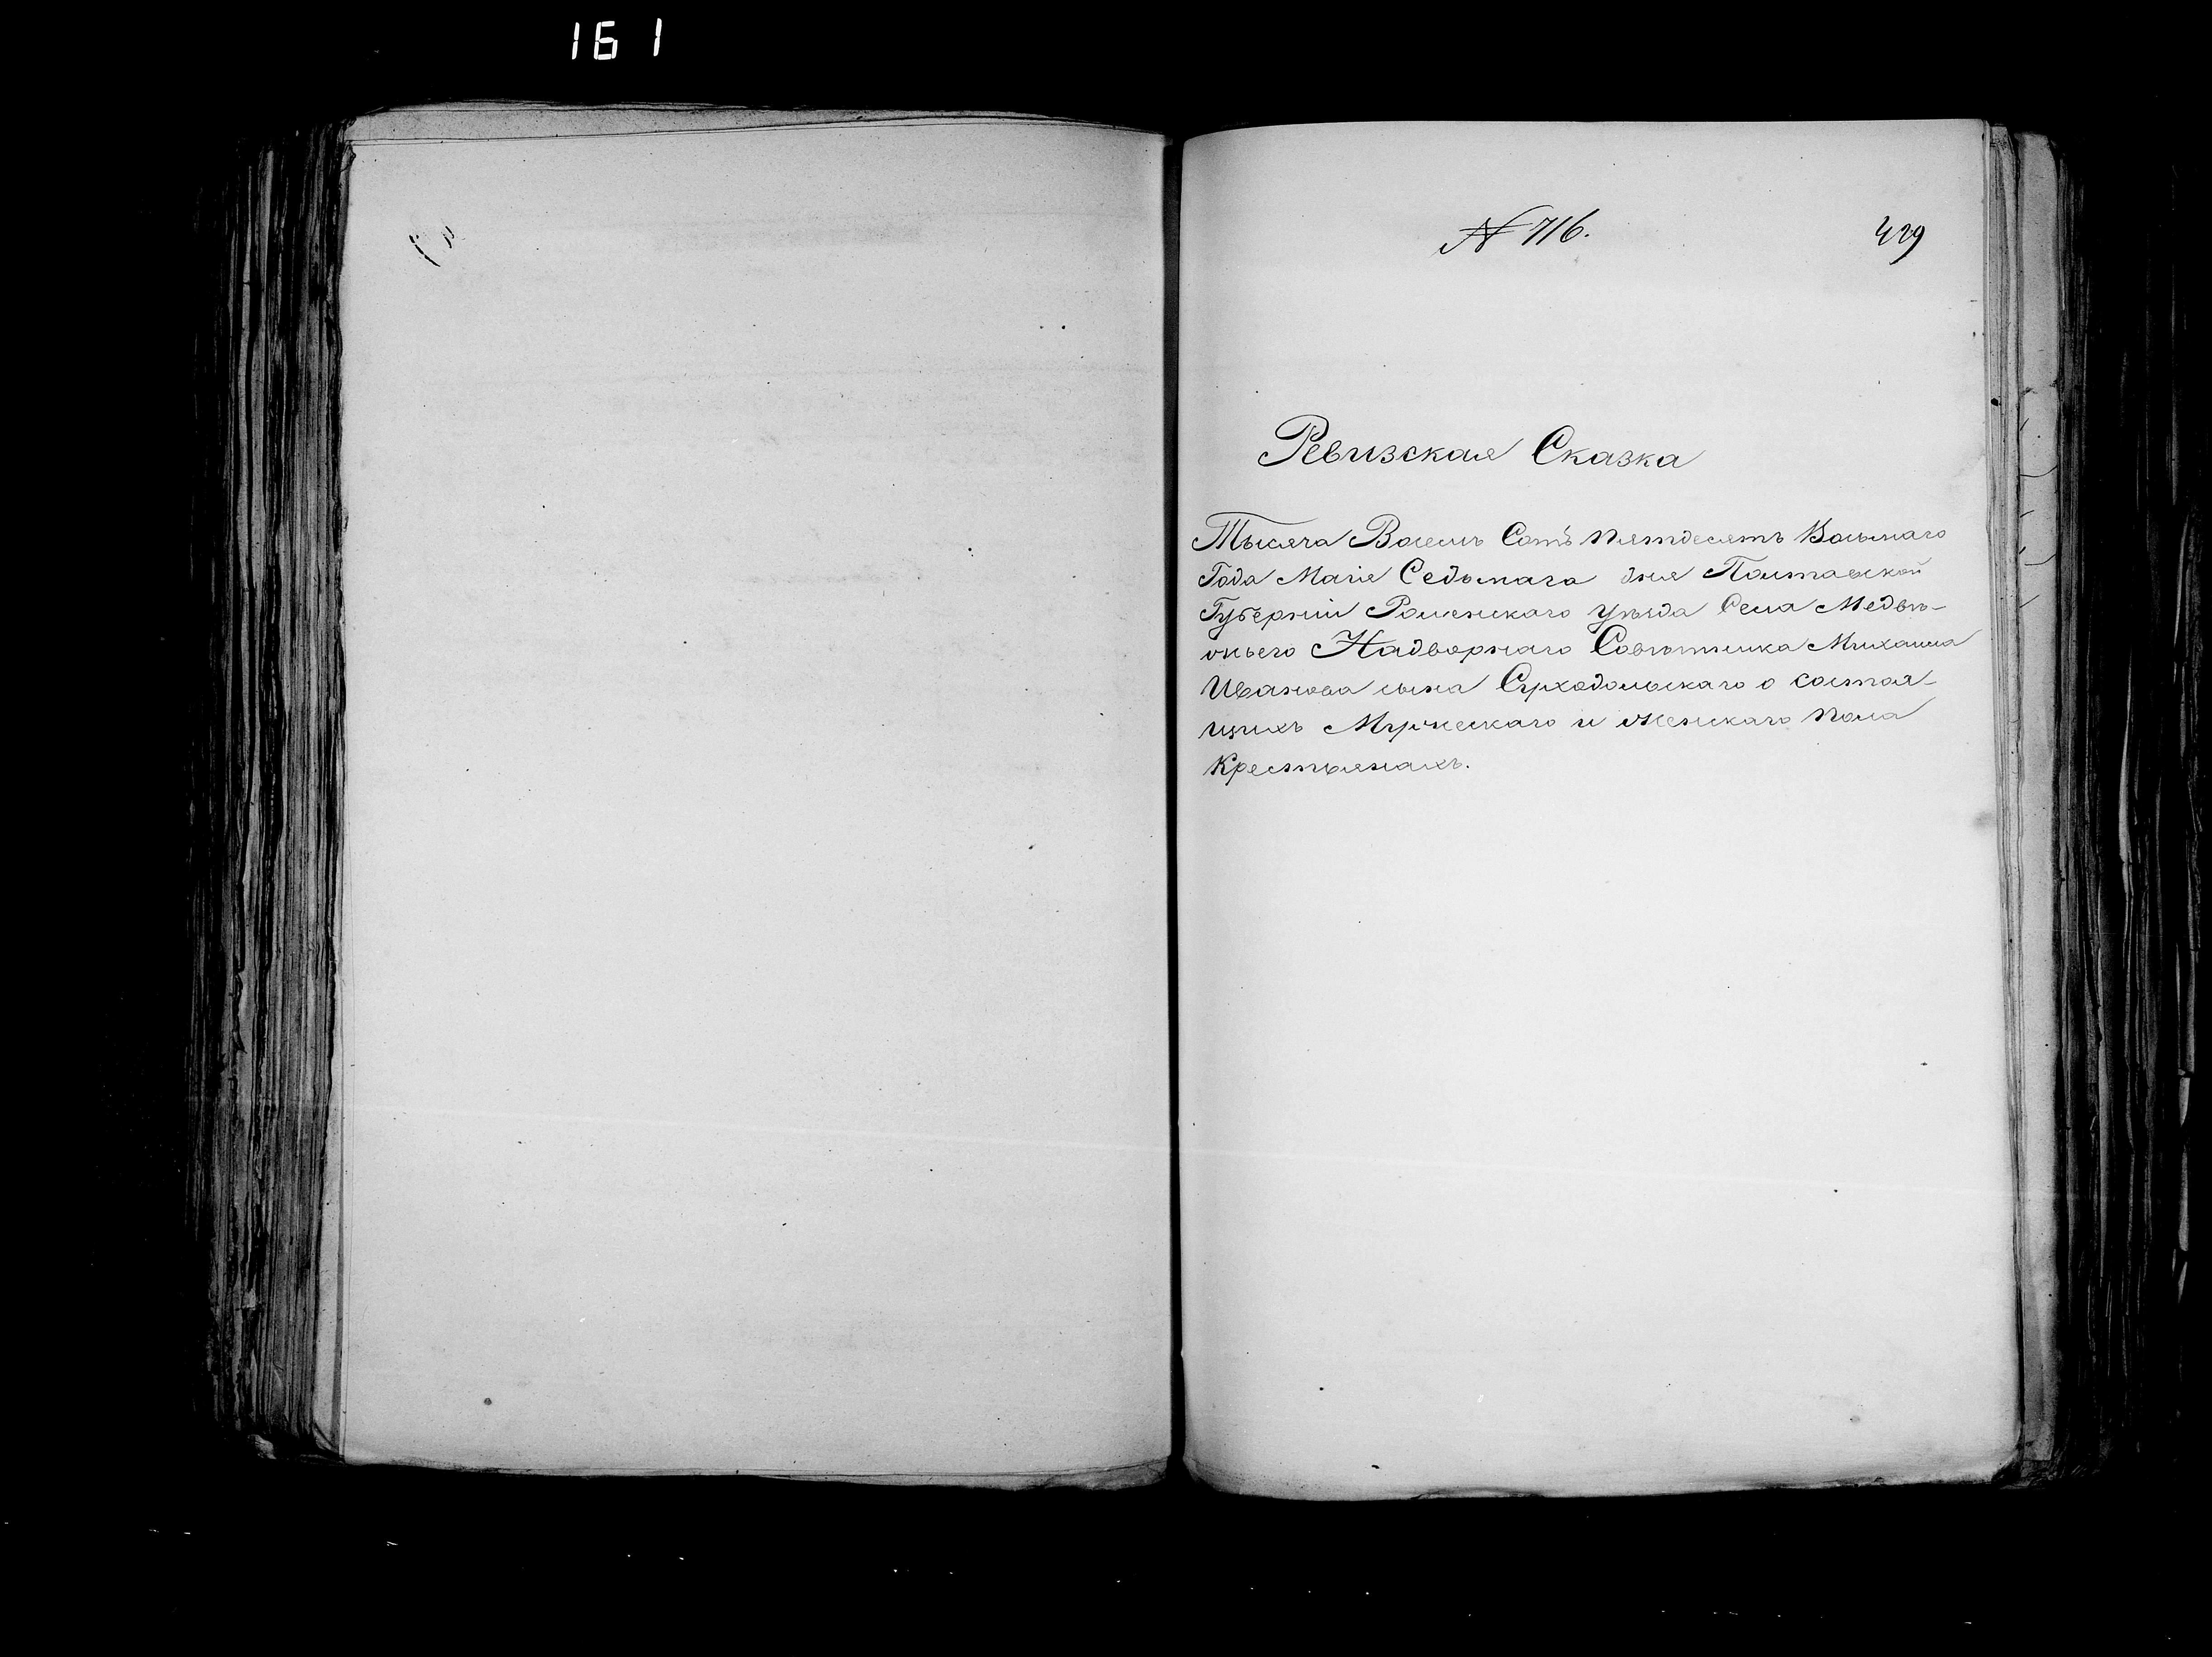 161
№ 716.
429
Ревизская Сказка
Тысяча Восемь Сотъ пятдесятъ Восьмаго
Года Маія Седьмаго дня Полтавской
Губерніи Роменскаго уѣзда Села Медвѣ-
жьего Надворнаго Совѣтника Михаила
Иванова сына Суходольскаго о состоя-
щихъ Мужескаго и женскаго пола
Крестьянахъ.